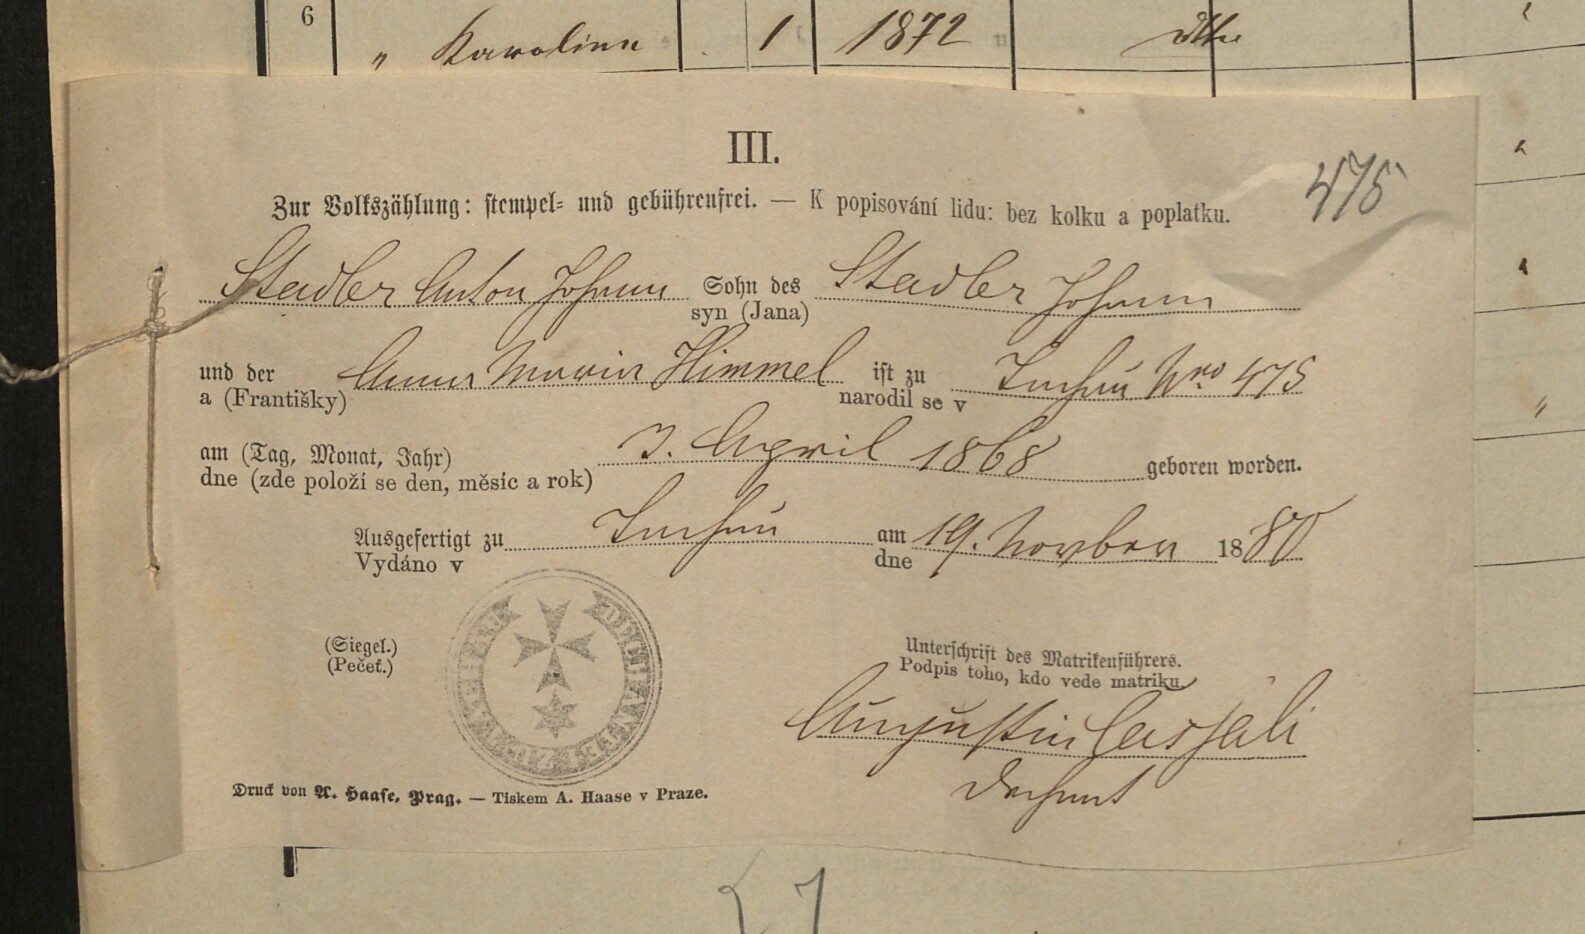 6 " Karolina 1 1872 dtto
III.
475
Zur Volkszählung: stempel- und gebührenfrei. — K popisování lidu: bez kolku a poplatku.
Stadler Anton Johann Sohn des Stadler Johann
syn (Jana)
und der Anna Maria Himmel ist zu Tachau Nro 475
a (Františky) narodil se v
am (Tag, Monat, Jahr) 3. April 1868 geboren worden.
dne (zde položí se den, měsíc a rok)
Ausgefertigt zu Tachau am 19. Novber 1880
Vydáno v dne
(Siegel.)
(Pečeť.)
Unterschrift des Matrikenführers.
Podpis toho, kdo vede matriku.
Augustin Cassali
Dechant
Druck von A. Haase, Prag. — Tiskem A. Haase v Praze.